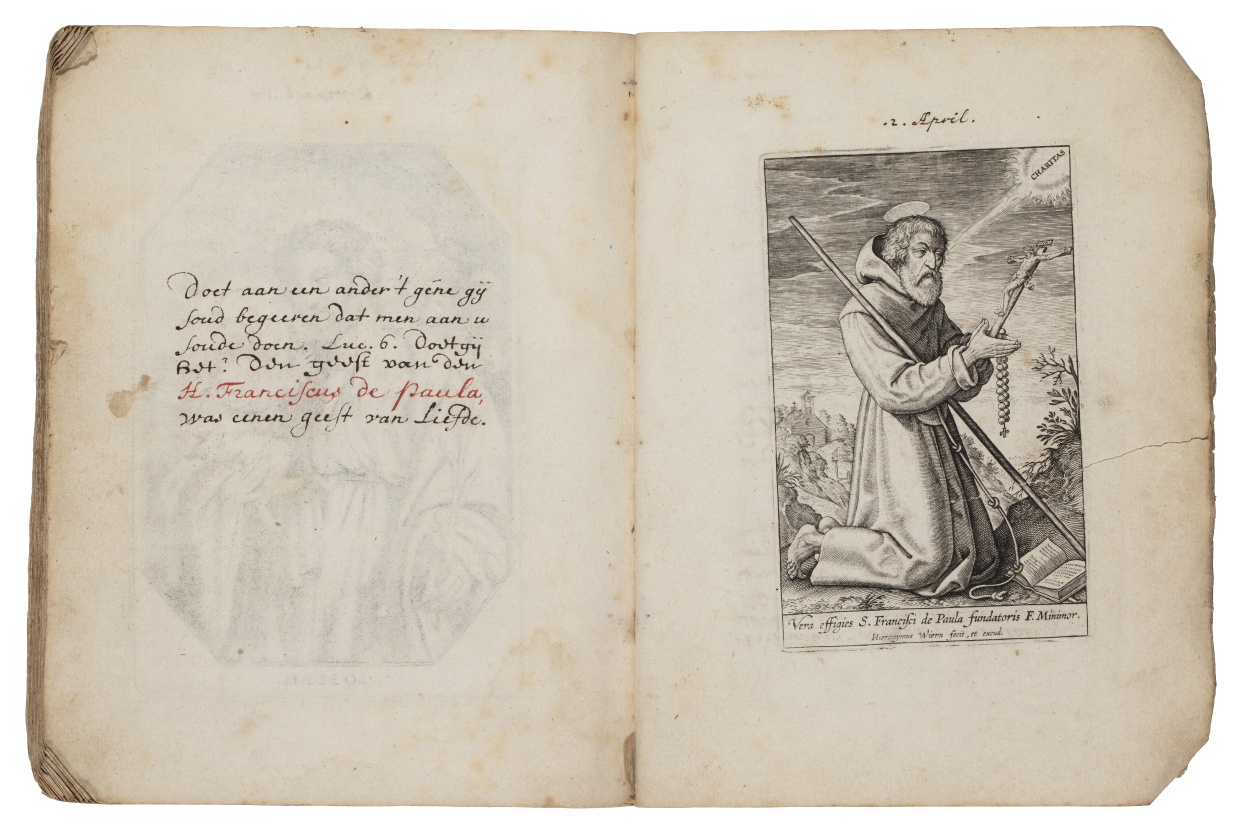 Doet aan een ander 't gene gij
soud begeeren dat men aan u
soude doen. Luc. 6. Doet gij
het? Den geest van den
H. Franciscus de Paula,
was eenen geest van Liefde.
.2. April.
CHARITAS
Vera effigies S. Francisci de Paula fundatoris F. Minimor.
Hieronymus Wierx fecit, et excud.